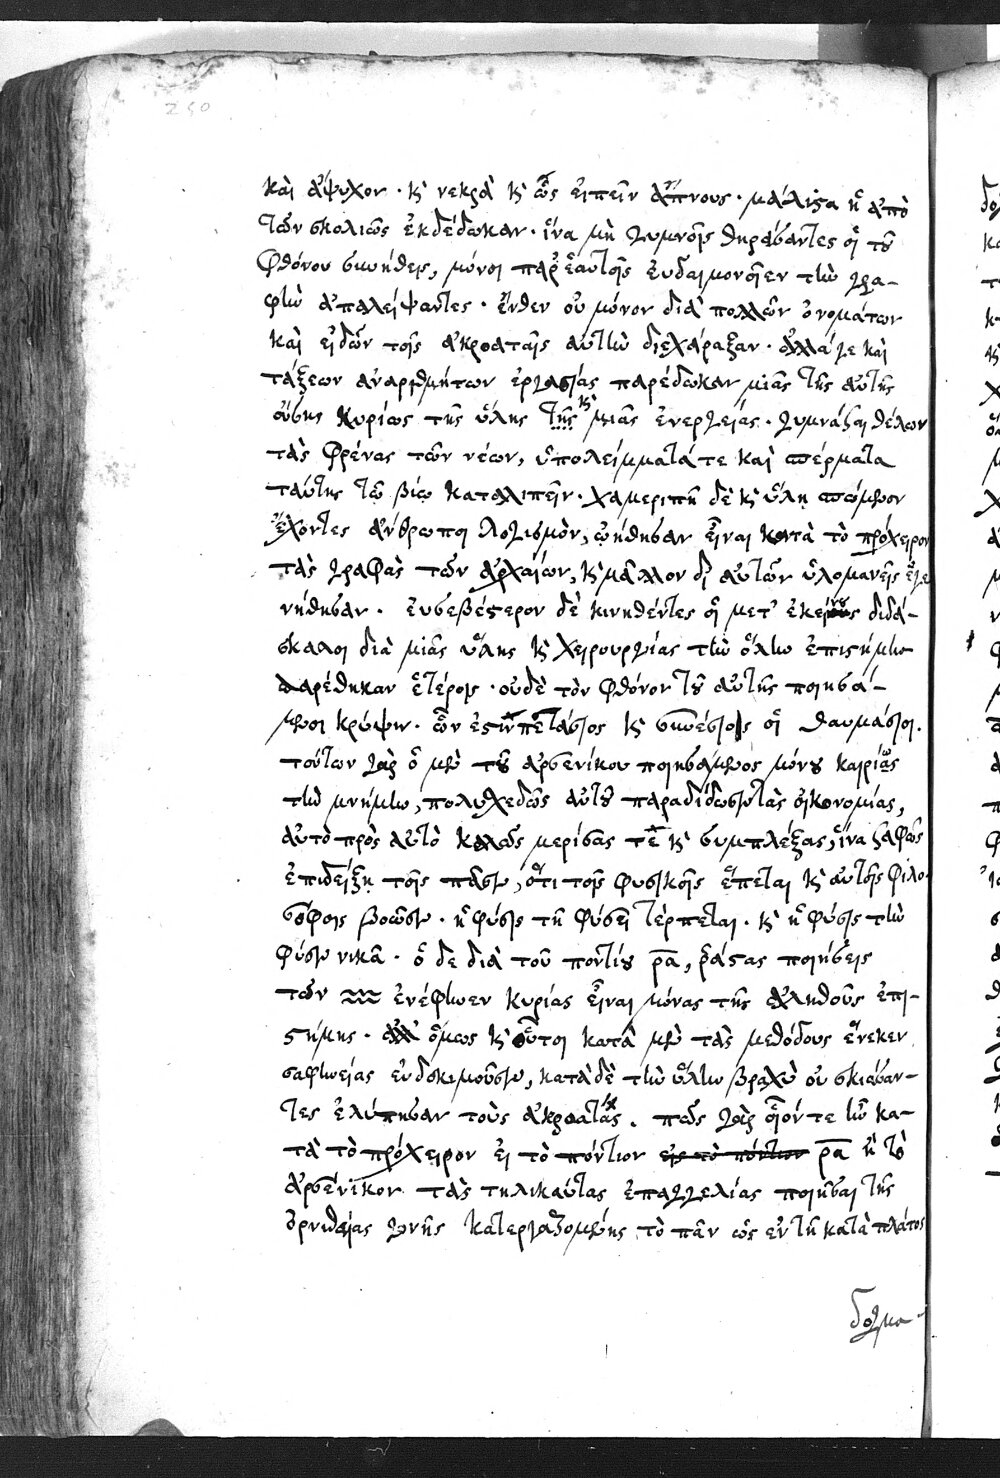 250
καὶ ἄψυχον · κ νεκρὰ κ ὡς εἰπεῖν ἄπνους · μάλιστα ἢ ἀπὸ
τῶν σκολιῶς ἐκδέδωκαν · ἵνα μὴ γυμνοῖς θηράσαντες οἱ τοῦ
φθόνου συνήθεις, μόνοι παρ' ἑαυτοῖς εὐδαιμονοῖεν τὴν γρα-
φὴν ἀπαλείψαντες · ἔνθεν οὐ μόνον διὰ πολλῶν ὀνομάτων
καὶ εἰδῶν τοῖς ἀκροαταῖς αὐτὴν διεχάραξαν · ἀλλά γε καὶ
τάξεων ἀναριθμήτων ἐργασίας παρέδωκαν μιᾶς τῆς αὐτῆς
οὔσης κυρίως τῆς ὕλης τῆς κ μιᾶς ἐνεργείας · γυμνάσαι θέλων
τὰς φρένας τῶν νέων, ὑπολείμματά τε καὶ σπέρματα
ταύτης τῷ βίῳ καταλιπεῖν · χαμεριπῆ δὲ κ ὕλη σπόμενον
ἔχοντες ἄνθρωποι λογισμὸν, ᾠήθησαν εἶναι κατὰ τὸ πρόχειρον
τὰς γραφὰς τῶν ἀρχαίων, κ μᾶλλον δι αὐτῶν ὑλομανεῖς ἐγε
νήθησαν · εὐσεβέστερον δὲ κινηθέντες οἱ μετ' ἐκείνους διδά-
σκαλοι διὰ μιᾶς ὕλης κ χειρουργίας τὴν ὅλην ἐπιστήμην
παρέθηκαν ἑτέροις · οὐδὲ τὸν φθόνον τοῦ αὐτῆς ποιησά-
μενοι κρύψιν · ὧν ἐστὶν πετάσιος κ συνέσιος οἱ θαυμάσιοι.
τούτων γὰρ ὁ μὲν τοῦ ἀρσενίκου ποιησάμενος μόνου καιρίως
τὴν μνήμην, πολυχεδῶς αὐτοῦ παραδίδωσιν τὰς οἰκονομίας,
αὐτὸ πρὸς αὐτὸ καλῶς μερίσας τὲ κ συμπλέξας, ἵνα σαφῶς
ἐπιδείξῃ τοῖς πᾶσιν, ὅτι τοῖς φυσικοῖς ἕπεται κ αὐτοῖς φιλο-
σόφοις βοῶσιν · ἡ φύσις τῇ φύσει τέρπεται · κ ἡ φύσις τὴν
φύσιν νικᾷ · ὁ δε διὰ τοῦ ποντίου ρα, δράσας ποιήσεις
τῶν ἐνέφηνεν κυρίας εἶναι μόνας τῆς ἀληθοῦς ἐπι-
στήμης · ἀλλ' ὅμως κ οὗτοι κατὰ μὲν τὰς μεθόδους ἕνεκεν
σαφηνείας εὐδοκιμοῦσιν, κατὰ δὲ τὴν ὕλην βραχὺ οὐ σκιάσαν-
τες ἐλύπησαν τοὺς ἀκροατάς. πῶς γὰρ οἷόν τε ἦν κα-
τὰ τὸ πρόχειρον εἰ τὸ πόντιον εἰς τὸ πόντιον ρα ἢ τὸ
ἀρσένικον τὰς τηλικαύτας ἐπαγγελίας ποιῆσαι τῆς
ὀρνιθείας γονῆς κατεργαζομένης τὸ πᾶν ὡς ἐν τῇ κατὰ πλάτος
δογμα-